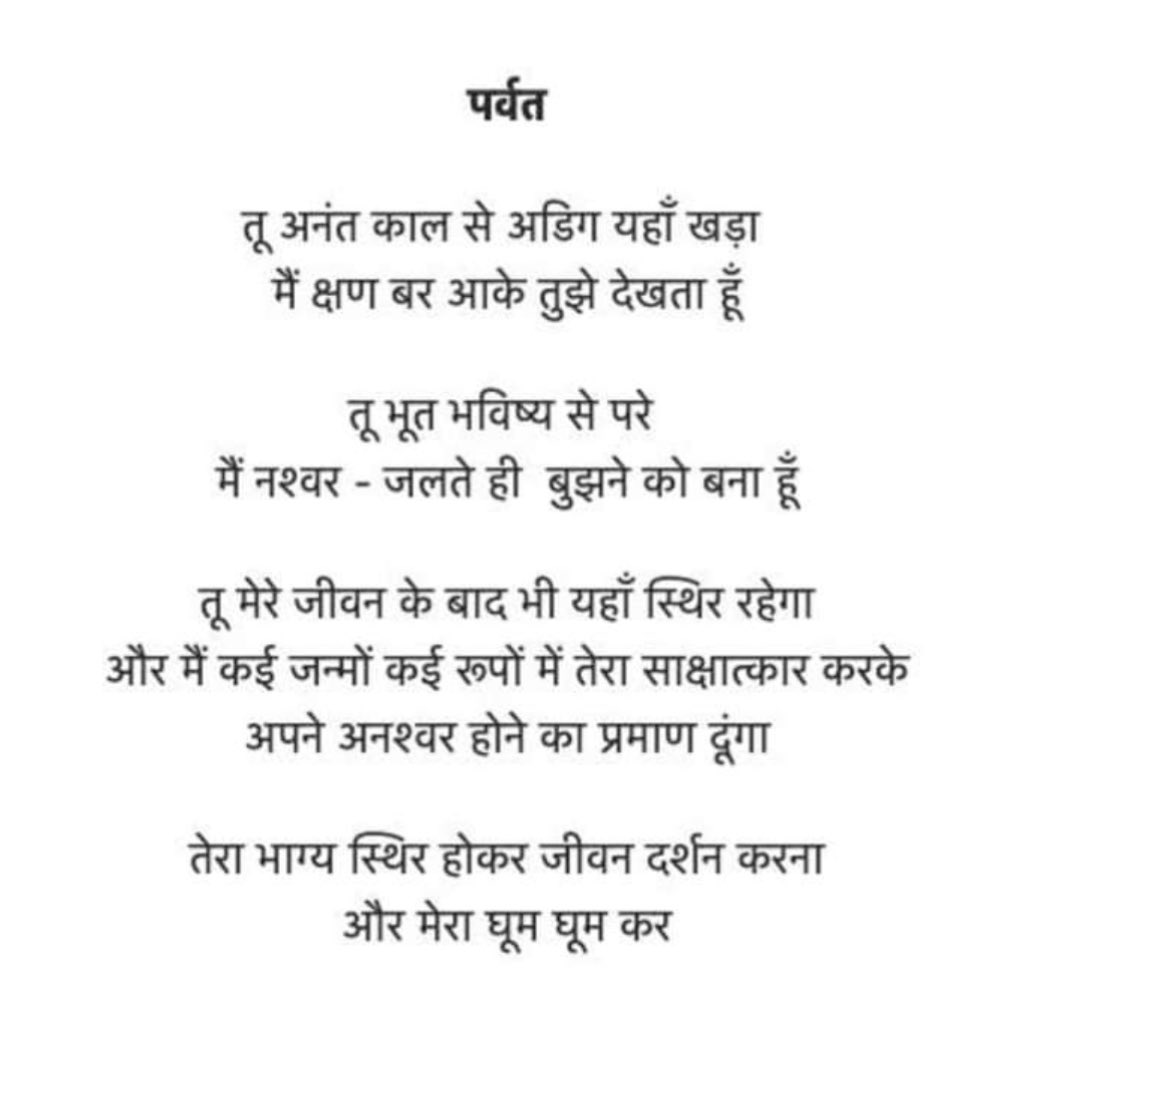 पर्वत
तू अनंत काल से अडिग यहाँ खड़ा
मैं क्षण बर आके तुझे देखता हूँ
तू भूत भविष्य से परे
मैं नश्वर - जलते ही बुझने को बना हूँ
तू मेरे जीवन के बाद भी यहाँ स्थिर रहेगा
और मैं कई जन्मों कई रूपों में तेरा साक्षात्कार करके
अपने अनश्वर होने का प्रमाण दूंगा
तेरा भाग्य स्थिर होकर जीवन दर्शन करना
और मेरा घूम घूम कर